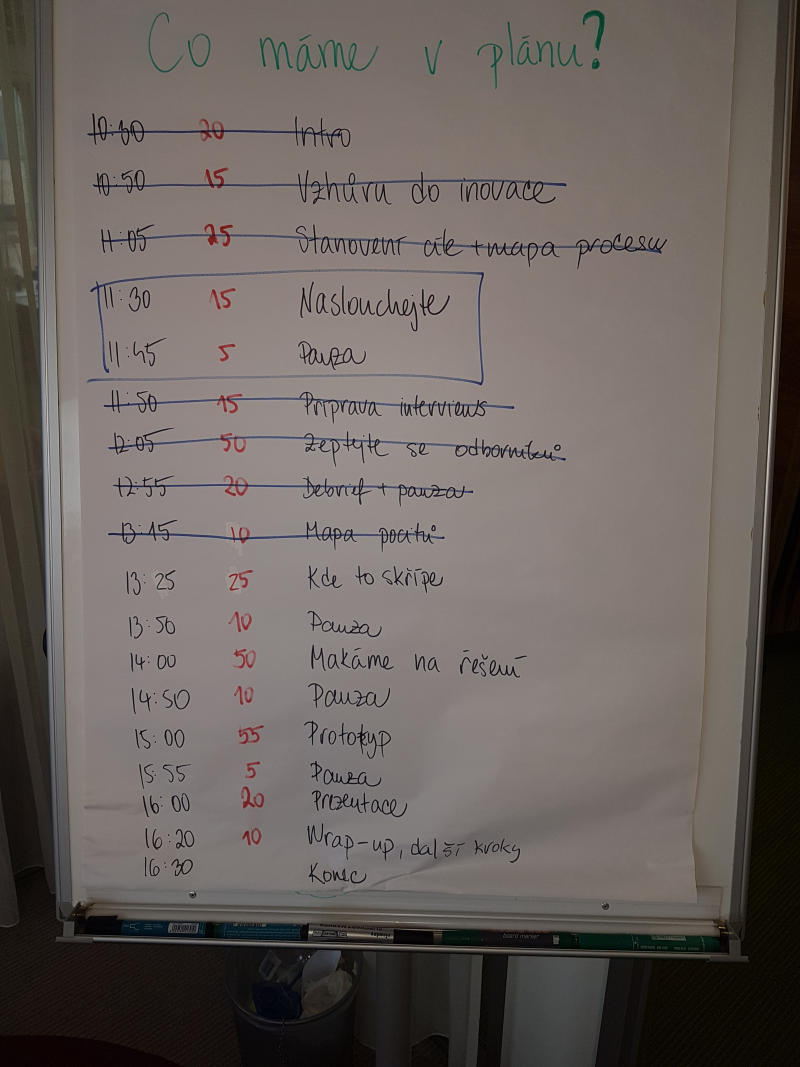 Co máme v plánu?
10:30 20 Intro
10:50 15 Vzhůru do inovace
11:05 25 Stanovení cíle + mapa procesu
11:30 15 Naslouchejte
11:45 5 Pauza
11:50 15 Příprava interviews
12:05 50 Zeptejte se odborníků
12:55 20 Debrief + pauza
13:15 10 Mapa pocitů
13:25 25 Kde to skřípe
13:50 10 Pauza
14:00 50 Makáme na řešení
14:50 10 Pauza
15:00 55 Prototyp
15:55 5 Pauza
16:00 20 Prezentace
16:20 10 Wrap-up, další kroky
16:30 Konec
board marker